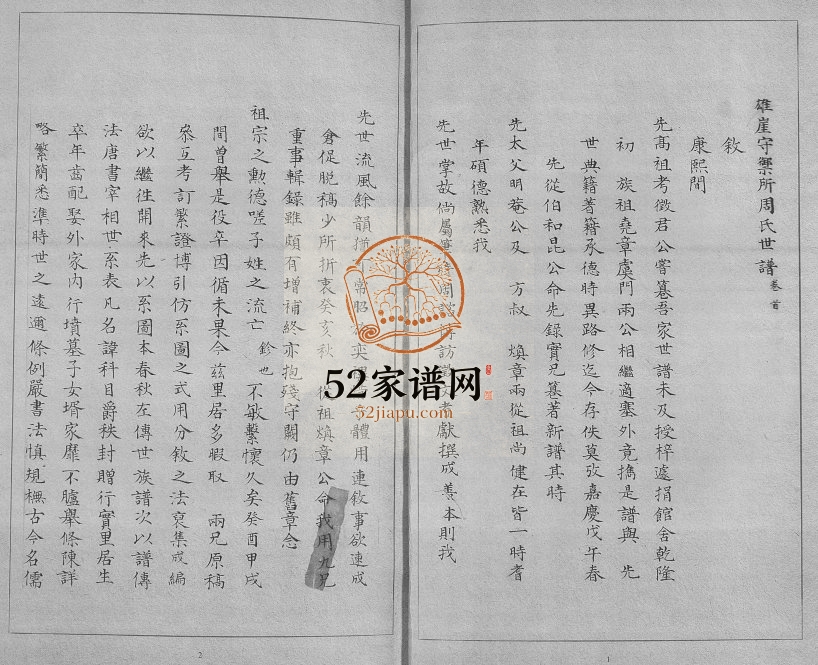 雄崖守禦所周氏世譜 卷首
敘
康熙間
先高祖考徵君公嘗纂吾家世譜未及授梓遽捐館舍乾隆
初 族祖堯章虞門兩公相繼適塞外竟攜是譜與 先
世典籍著籍承德時異路修迄今存佚莫攷嘉慶戊午春
先從伯和昆公命先錄實兄纂著新譜其時
先太父明菴公及 方叔 煥章兩從祖尚健在皆一時耆
年碩德熟悉我
先世掌故倘屬 訪 獻撰成善本則我
先世流風餘韻 體用連敘事欲速成
倉促脫稿少所折衷癸亥秋 從祖煥章公命我用九兄
重事輯錄雖頗有增補終亦抱殘守闕仍由舊章念
祖宗之勳德嗟子姓之流亡 鉁也 不敏繫懷久矣癸酉甲戌
間曾舉是役卒因循未果今茲里居多暇取 兩兄原稿
參互考訂繁證博引仿系圖之式用分敘之法裒集成編
欲以繼徃開來先以系圖本春秋左傳世族譜次以譜傳
法唐書宰相世系表凡名諱科目爵秩封贈行實里居生
卒年齒配娶外家內行墳墓子女壻家靡不臚舉條陳詳
略繁簡悉準時世之遠邇條例嚴書法慎規橅古今名儒
52家谱网
52jiapu.com
2
1